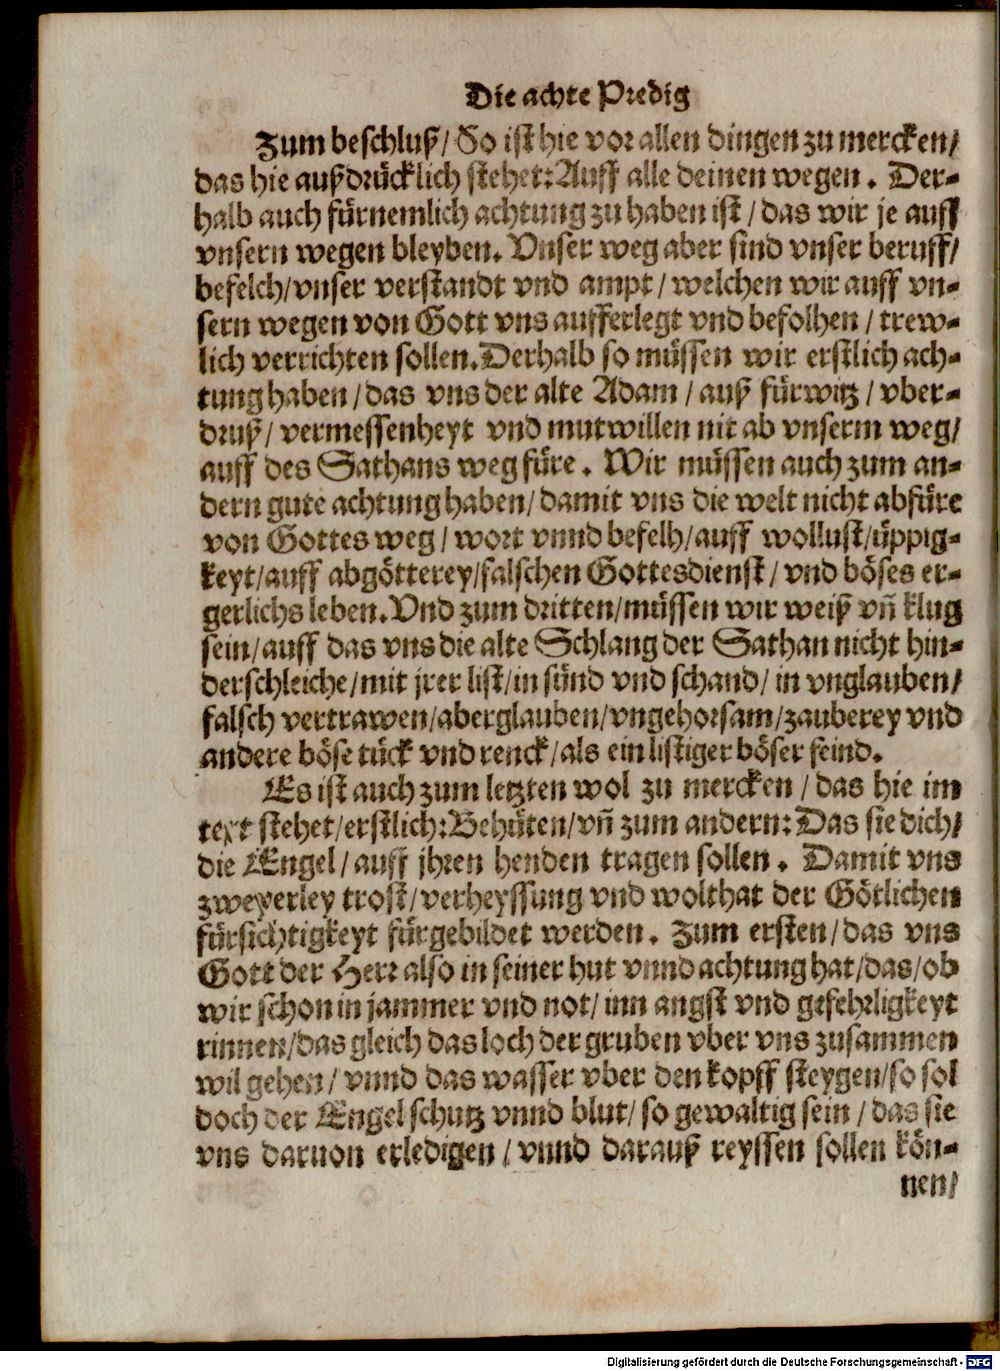 Die achte Predig
Zum beschluß/ So ist hie vor allen dingen zu mercken/
das hie außdrücklich stehet: Auff alle deinen wegen. Der-
halb auch fürnemlich achtung zu haben ist/ das wir je auff
vnsern wegen bleyben. Vnser weg aber sind vnser beruff/
befelch/ vnser verstandt vnd ampt/ welchen wir auff vn-
sern wegen von Gott vns aufferlegt vnd befolhen/ trew-
lich verrichten sollen. Derhalb so müssen wir erstlich ach-
tung haben/ das vns der alte Adam/ auß fürwitz/ vber-
druß/ vermessenheyt vnd mutwillen nit ab vnserm weg/
auff des Sathans weg füre. Wir müssen auch zum an-
dern gute achtung haben/ damit vns die welt nicht abfüre
von Gottes weg/ wort vnnd befelh/ auff wollust/ üppig-
keyt/ auff abgötterey/ falschen Gottesdienst/ vnd böses er-
gerlichs leben. Vnd zum dritten/ müssen wir weiß vñ klug
sein/ auff das vns die alte Schlang der Sathan nicht hin-
derschleiche/ mit jrer list/ in sünd vnd schand/ in vnglauben/
falsch vertrawen/ aberglauben/ vngehorsam/ zauberey vnd
andere böse tück vnd renck/ als ein listiger böser feind.
Es ist auch zum letzten wol zu mercken/ das hie im
text stehet/ erstlich: Behüten/ vñ zum andern: Das sie dich/
die Engel/ auff jhren henden tragen sollen. Damit vns
zweyerley trost/ verheyssung vnd wolthat der Götlichen
fürsichtigkeyt fürgebildet werden. Zum ersten/ das vns
Gott der Herr also in seiner hut vnnd achtung hat/ das/ ob
wir schon in jammer vnd not/ inn angst vnd gefehrligkeyt
rinnen/ das gleich das loch der gruben vber vns zusammen
wil gehen/ vnnd das wasser vber den kopff steygen/ so sol
doch der Engel schutz vnnd blut/ so gewaltig sein/ das sie
vns daruon erledigen/ vnnd darauß reyssen sollen kön-
nen/
Digitalisierung gefördert durch die Deutsche Forschungsgemeinschaft - DFG